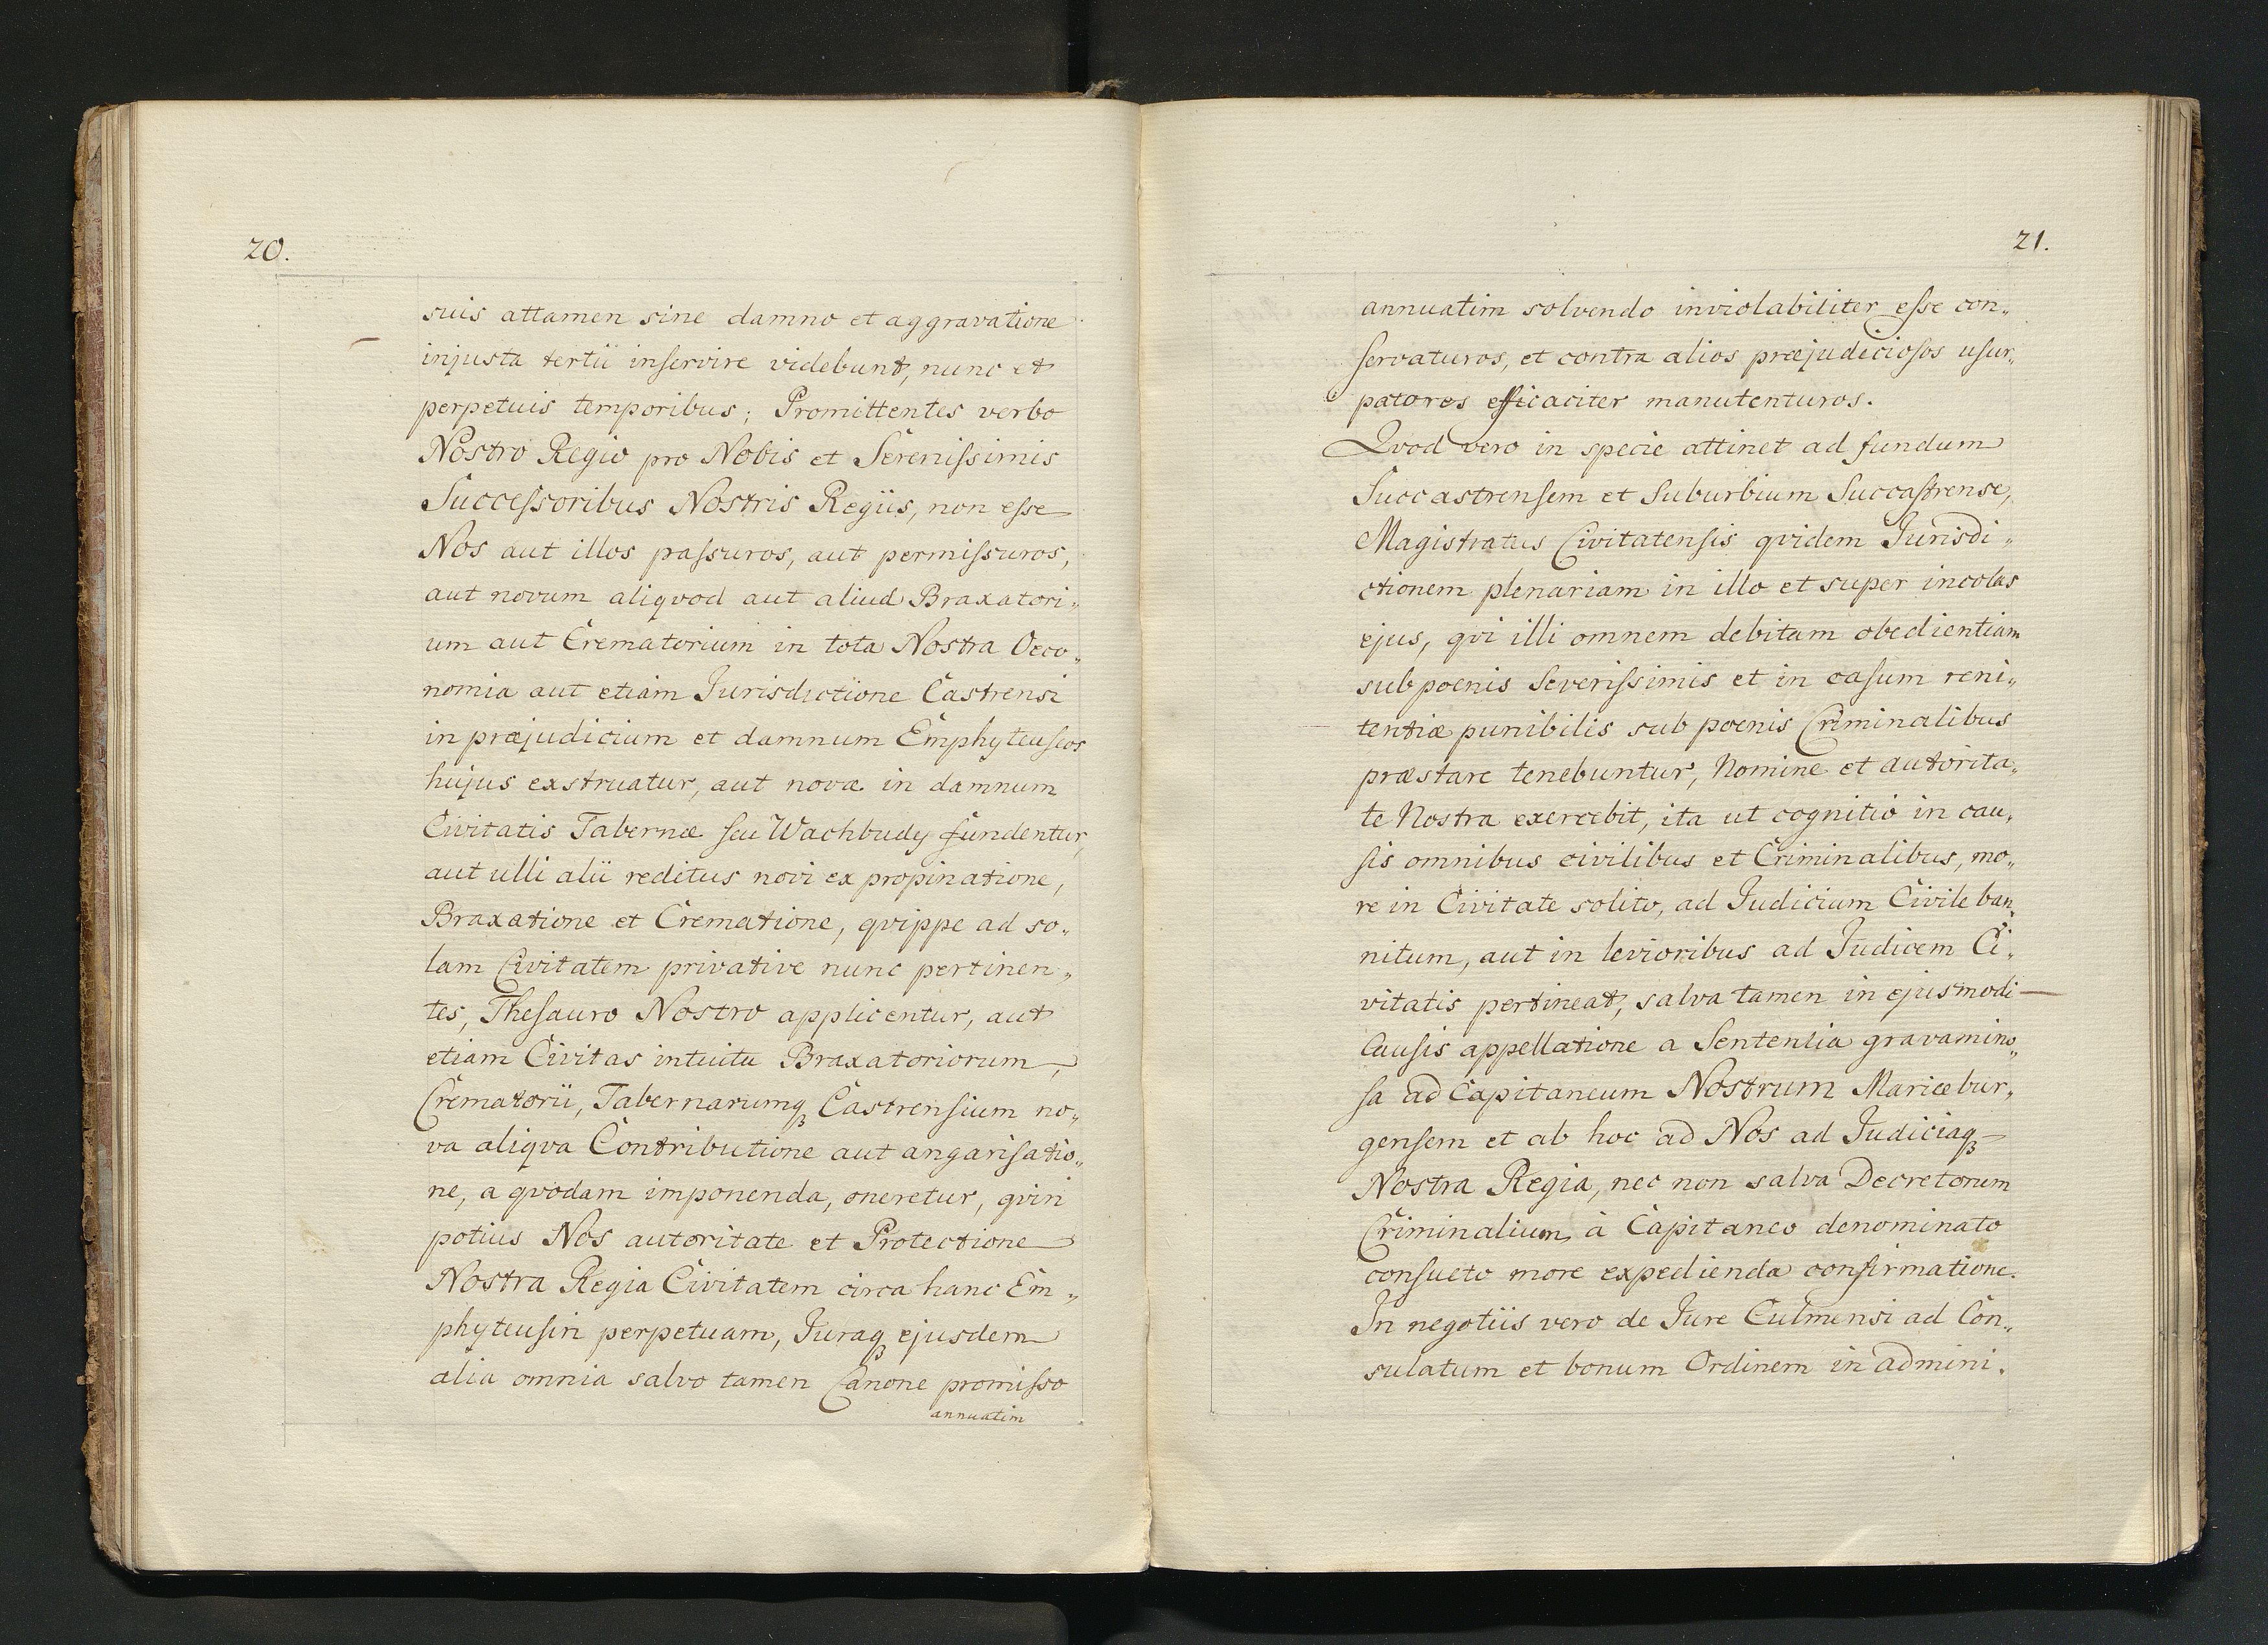 20.
suis attamen sine damno et aggravatione
injusta tertii inservire videbunt, nunc et
perpetuis temporibus; Promittentes verbo
Nostro Regio pro Nobis et Serenissimis
Successoribus Nostris Regiis, non esse
Nos aut illos passuros, aut permissuros,
aut novum aliqvod aut aliud Braxatori„
um aut Crematorium in tota Nostra Oeco„
nomia aut etiam Jurisdictione Castrensi
in præjudicium et damnum Emphyteuseos
hujus exstruatur, aut novæ in damnum
Civitatis Tabernæ seu Wachbudy fundentur,
aut ulli alii reditus novi ex propinatione,
Braxatione et Crematione, qvippe ad so„
lam Civitatem privative nunc pertinen„
tes, Thesauro Nostro applicentur, aut
etiam Civitas intuitu Braxatoriorum,
Crematorii, Tabernarumqꝫ Castrensium no„
va aliqva Contributione aut angarisatio„
ne, a qvodam imponenda, oneretur, qvin
potius Nos autoritate et Protectione
Nostra Regia Civitatem circa hanc Em„
phyteusin perpetuam, Juraqꝫ ejusdem
alia omnia salvo tamen Canone promisso
annuatim
21.
annuatim solvendo inviolabiliter esse con„
servaturos, et contra alios præjudiciosos usur„
patores efficaciter manutenturos.
Qvod vero in specie attinet ad fundum
Succastrensem et Suburbium Succastrense,
Magistratus Civitatensis qvidem Jurisdi„
ctionem plenariam in illo et super incolas
ejus, qvi illi omnem debitam obedientiam
sub poenis Severissimis et in casum reni„
tentiæ punibilis sub poenis Criminalibus
præstare tenebuntur, Nomine et autorita„
te Nostra exercebit, ita ut cognitio in cau„
sis omnibus civilibus et Criminalibus, mo„
re in Civitate solito, ad Judicium Civile ban„
nitum, aut in levioribus ad Judicem Ci„
vitatis pertineat, salva tamen in ejusmodi
Causis appellatione a Sententia gravamino„
sa ad Capitaneum Nostrum Mariæbur„
gensem et ab hoc ad Nos ad Judiciaqꝫ
Nostra Regia, nec non salva Decretorum
Criminalium à Capitaneo denominato
consueto more expedienda confirmatione.
In negotiis vero de Jure Culmensi ad Con„
sulatum et bonum Ordinem in admini„